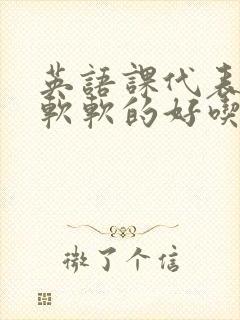 英語課代表
軟軟的好喫
微了个信